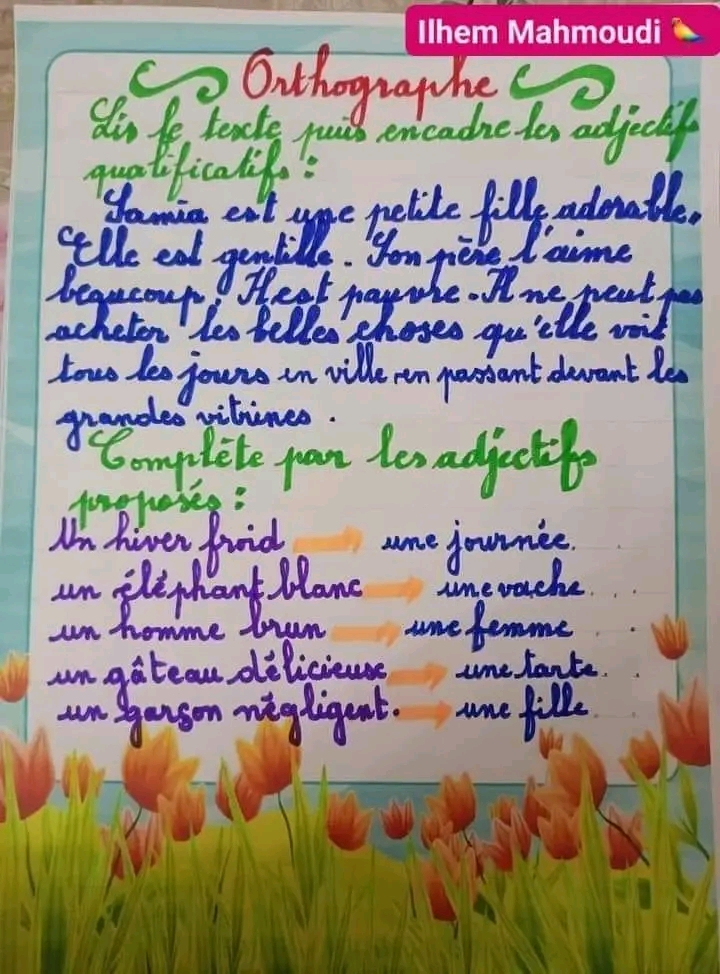 Ilhem Mahmoudi
Orthographe
Lis le texte puis encadre les adjectifs
qualificatifs :
Samia est une petite fille adorable.
Elle est gentille. Son père l'aime
beaucoup. Il est pauvre. Il ne peut pas
acheter les belles choses qu'elle voit
tous les jours en ville en passant devant les
grandes vitrines.
Complète par les adjectifs
proposés :
Un hiver froid → une journée. . .
un éléphant blanc → une vache. . .
un homme brun → une femme . .
un gâteau délicieuse → une tarte. . .
un garçon négligent. → une fille. .